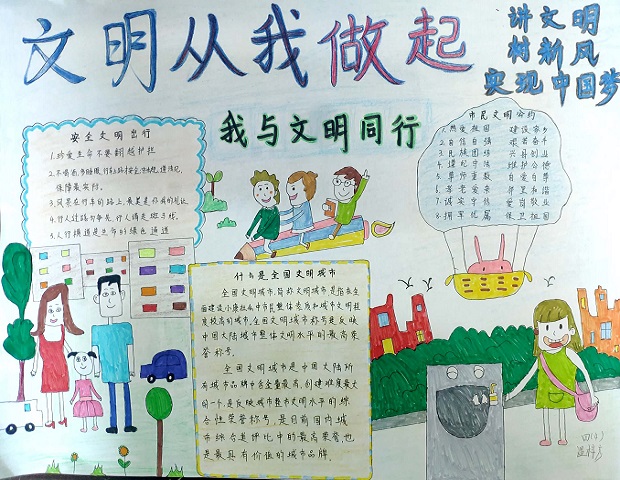 文明从我做起
讲文明
树新风
实现中国梦
我与文明同行
安全文明出行
1.珍爱生命不要翻越护栏
保障最实际。
3.风景在行车的路上,最美是你我的礼让
5.人行横道是生命的绿色通道
市民文明公约
1.热爱祖国 建设家乡
2.自信自强 艰苦奋斗
3.民族团结 兴县创业
4.遵纪守法 维护公德
5.尊师重教 自爱自尊
6.孝老爱亲 邻里和谐
7.诚实守信 爱岗敬业
8.拥军优属 保卫祖国
什么是全国文明城市
全国文明城市,简称文明城市,是指在全
面建设小康社会中市民整体素质和城市文明程
度较高的城市,全国文明城市称号是反映
中国大陆城市整体文明水平的最高荣
誉称号。
全国文明城市是中国大陆所
有城市品牌中含金量最高、创建难度最大
的一个,是反映城市整体文明水平的综
合性荣誉称号,是目前国内城
市综合类评比中的最高荣誉,也
是最具有价值的城市品牌。